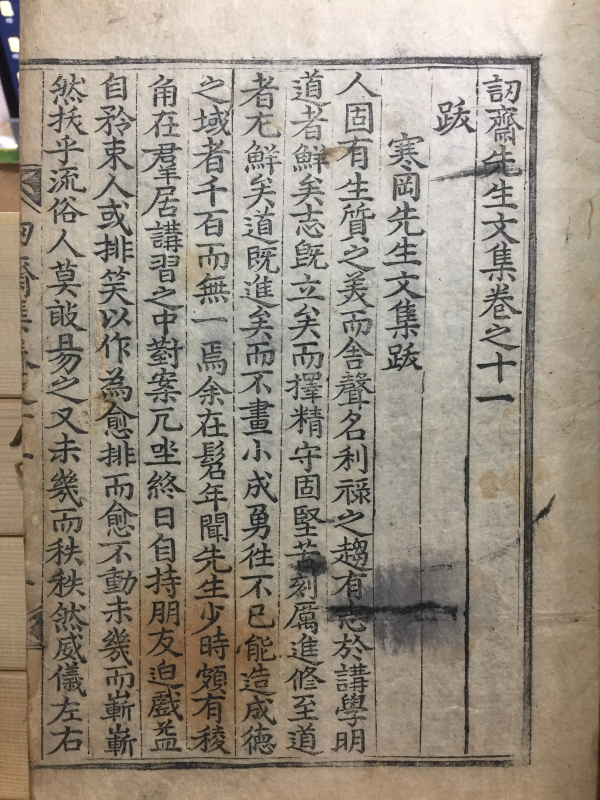 訒齋先生文集卷之十一
跋
寒岡先生文集跋
人固有生質之美而舍聲名利祿之趨有志於講學明
道者鮮矣志旣立矣而擇精守固堅苦刻厲進修至道
者尤鮮矣道旣進矣而不畫小成勇徃不已能造成德
之域者千百而無一焉余在髫年聞先生少時頗有稜
角在羣居講習之中對案兀坐終日自持朋友迫戱益
自矜束人或排笑以作為愈排而愈不動未幾而嶄嶄
然挨乎流俗人莫敢易之又未幾而秩秩然威儀左右